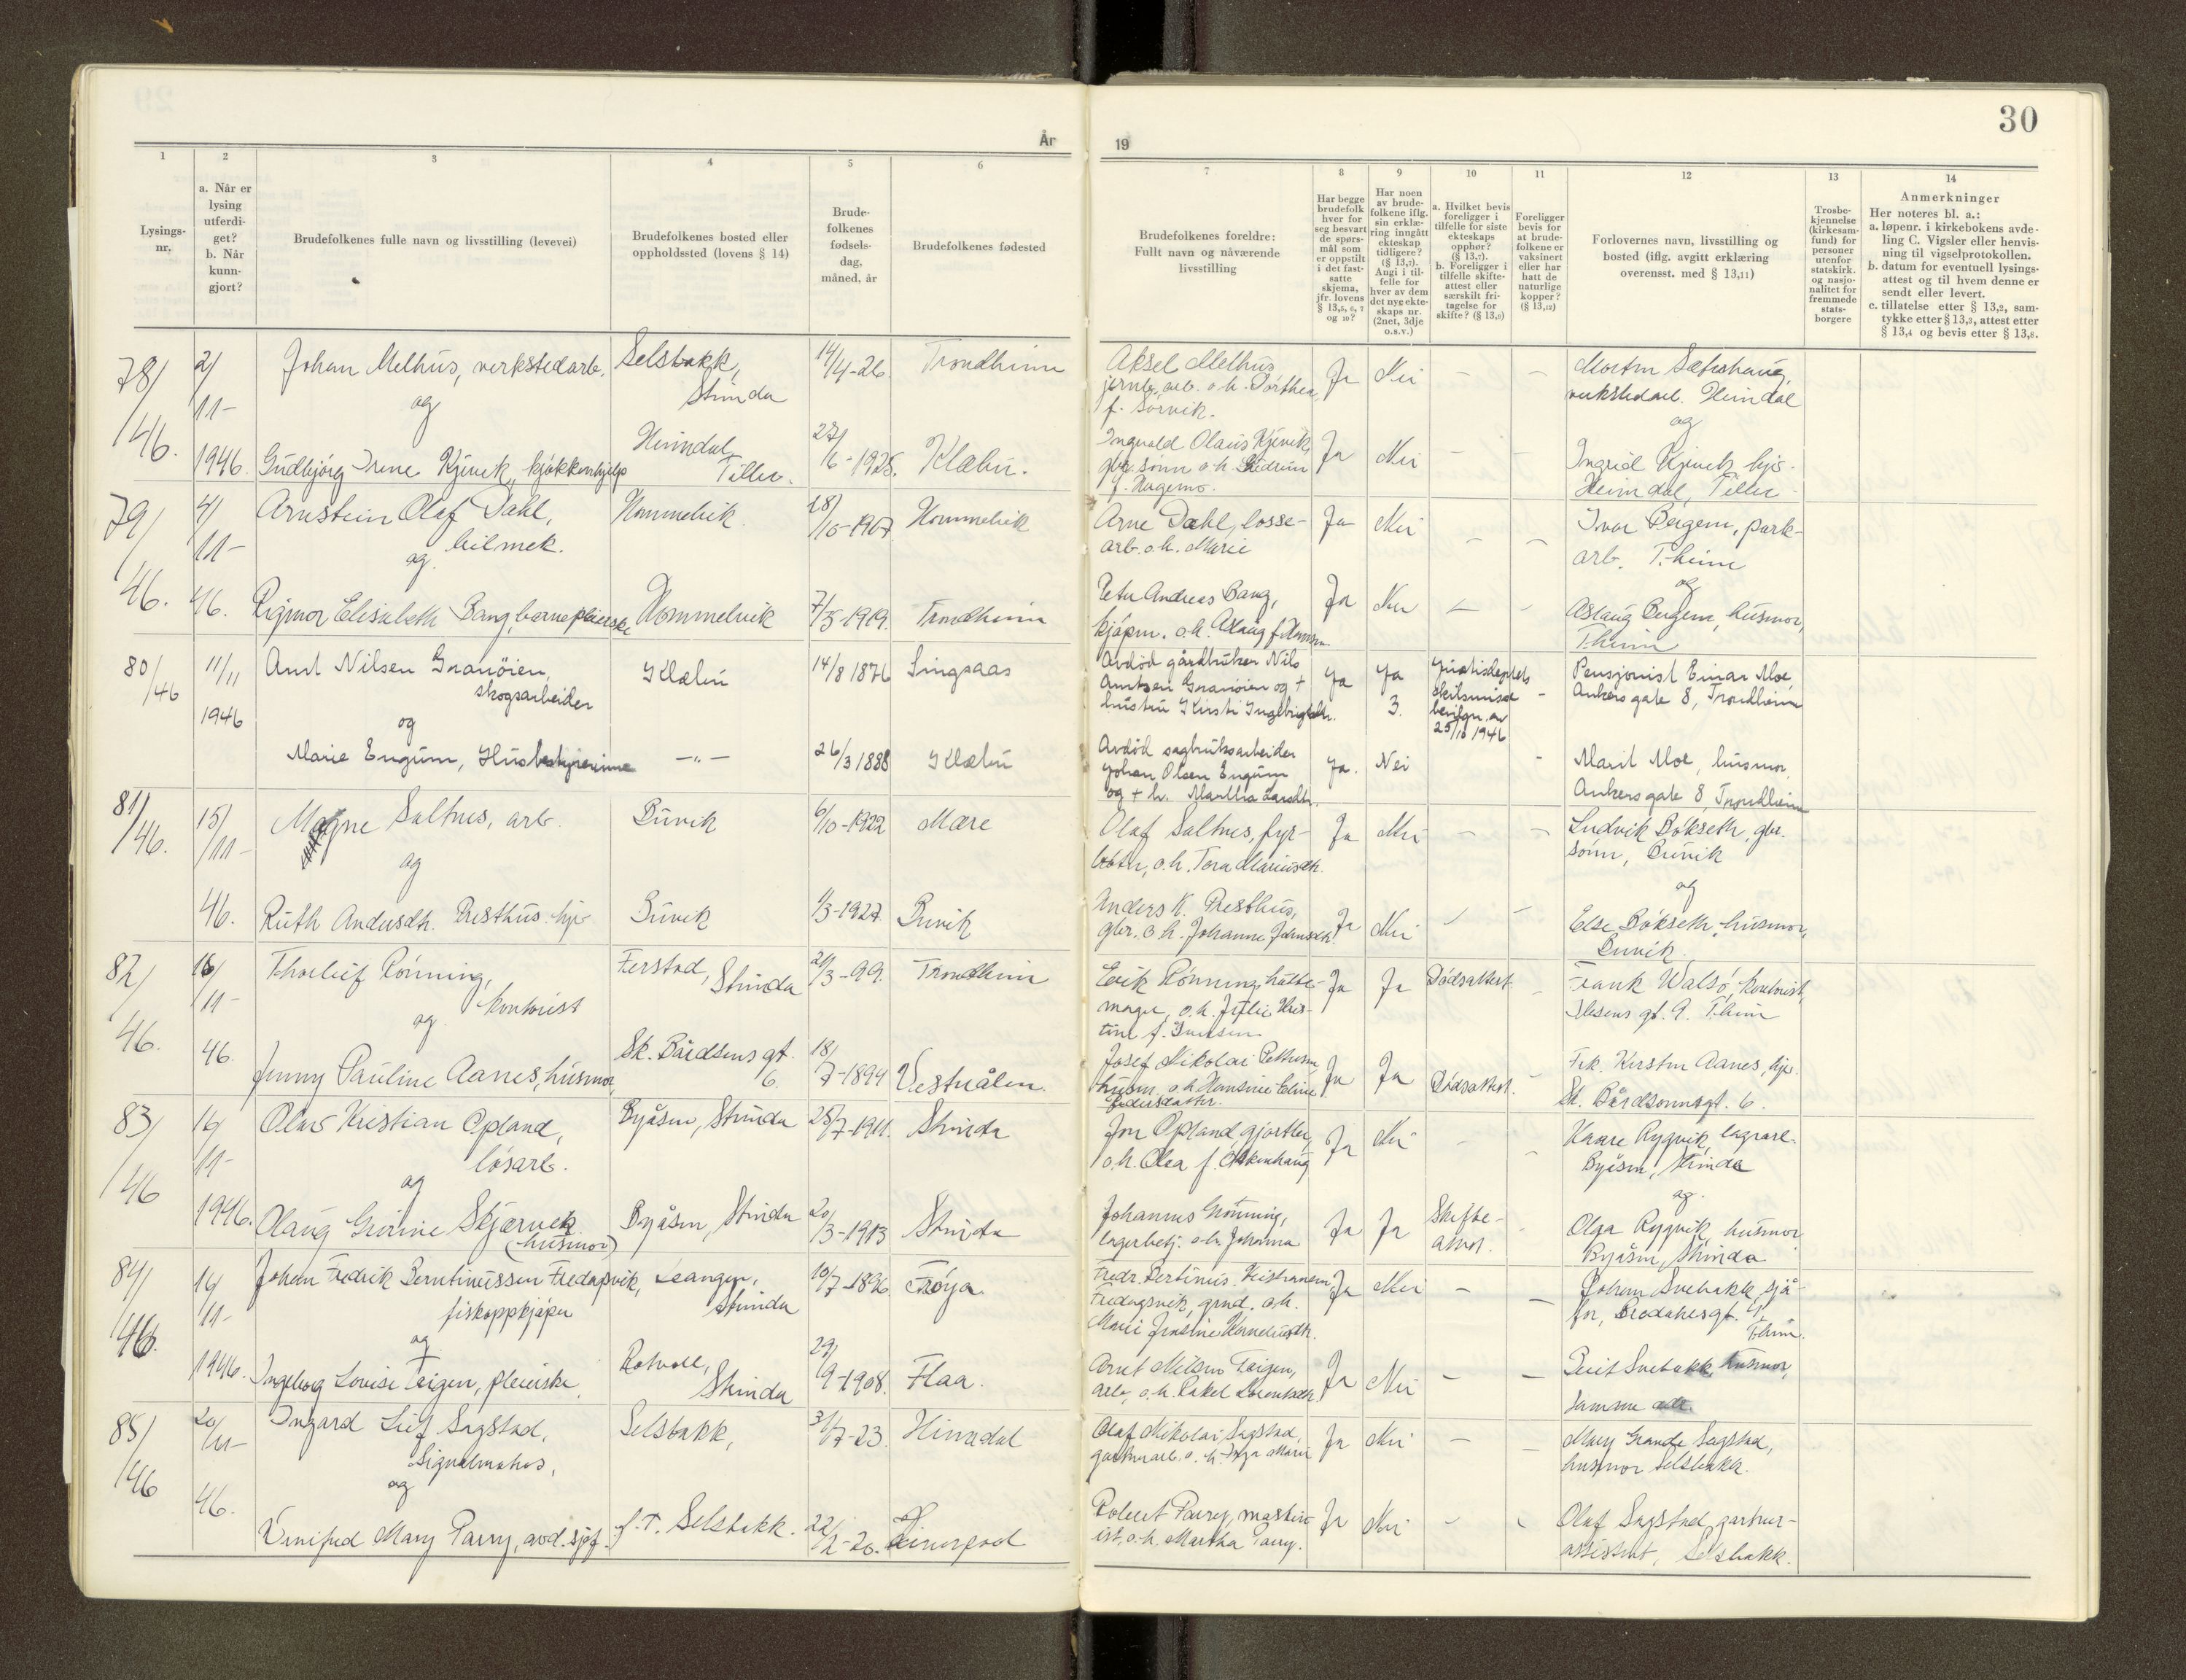 30
År
19
1
Lysings-
nr.
2
a. Når er
lysing
utferdi-
get?
b. Når
kunn-
gjort?
3
Brudefolkenes fulle navn og livsstilling (levevei)
4
Brudefolkenes bosted eller
oppholdssted (lovens § 14)
5
Brude-
folkenes
fødsels-
dag,
måned, år
6
Brudefolkenes fødested
7
Brudefolkenes foreldre:
Fullt navn og nåværende
livsstilling
8
Har begge
brudefolk
hver for
seg besvart
de spørs-
mål som
er oppstilt
i det fast-
satte
skjema,
jfr. lovens
§ 13,5, 6, 7
og 10?
9
Har noen
av brude-
folkene iflg.
sin erklæ-
ring inngått
ekteskap
tidligere?
(§ 13,7).
Angi i til-
felle for
hver av dem
det nye ekte-
skaps nr.
(2net, 3dje
o.s.v.)
10
a. Hvilket bevis
foreligger i
tilfelle for siste
ekteskaps
opphør?
(§ 13,7).
b. Foreligger i
tilfelle skifte-
attest eller
særskilt fri-
tagelse for
skifte? (§ 13,9)
11
Foreligger
bevis for
at brude-
folkene er
vaksinert
eller har
hatt de
naturlige
kopper?
(§ 13,12)
12
Forlovernes navn, livsstilling og
bosted (iflg. avgitt erklæring
overensst. med § 13,11)
13
Trosbe-
kjennelse
(kirkesam-
fund) for
personer
utenfor
statskirk.
og nasjo-
nalitet for
fremmede
stats-
borgere
14
Anmerkninger
Her noteres bl. a.:
a. løpenr. i kirkebokens avde-
ling C. Vigsler eller henvis-
ning til vigselprotokollen.
b. datum for eventuell lysings-
attest og til hvem denne er
sendt eller levert.
c. tillatelse etter § 13,2, sam-
tykke etter § 13,3, attest etter
§ 13,4 og bevis etter § 13,8.
78/46. 2/11-1946.
Johan Melhus, verkstedarb. Selsbakk, Strinda 14/4-26. Trondheim
Aksel Melhus
jernb. arb. o. h. Dorthea
f. Sørvik.
Ja Nei – –
Morten Sætershaug,
verkstedarb. Heimdal
og
Gudbjørg Irene Kjevik, kjøkkenhjelp Heimdal, Tiller. 27/6-1925. Klæbu.
Ingvald Olaus Kjevik,
gbr. sønn o. h. Gudrun
f. Hagemo.
Ja Nei – –
Ingrid Kjevik hjs.
Heimdal, Tiller
79/46. 4/11-46.
Arnstein Olaf Dahl, bilmek. Hommelvik 28/10-1907 Hommelvik
Arne Dahl, losse-
arb. o. h. Marie
Ja Nei – –
Ivar Bergem, park-
arb. T.heim
og
Rigmor Elisabeth Bang, barnepleierske Hommelvik 7/5-1919. Trondheim
Peter Andreas Bang,
kjøpm. o. h. Aslaug f. Hansen.
Ja Nei – –
Aslaug Bergem, husmor,
T.heim
80/46 11/11 1946
Arnt Nilsen Granøien, skogsarbeider Klæbu 14/8 1876 Singsaas
Avdød gårdbruker Nils
Arntsen Granøien og +
hustru Kirsti Ingebrigtsdtr.
Ja Ja 3. Justisdeptets
skilsmisse
bevilgn. av
25/10 1946 –
Pensjonist Einar Moe,
Ankers gate 8, Trondheim
og
Marie Engum, Husbestyrerinne —„— 26/3 1888 Klæbu
Avdød sagbruksarbeider
Johan Olsen Engum
og + h. Martha Larsdtr.
Ja. Nei –
Marit Moe, husmor,
Ankers gate 8, Trondheim
81/46. 15/11-46.
Magne Salthus, arb. Buvik 6/10-1922 Mære
Olaf Salthus, fyr-
bøter, o. h. Tora Mariusdtr.
Ja Nei – –
Ludvik Bökseth, gbr.
sønn, Buvik
og
Ruth Andersdtr. Presthus hjv Buvik 1/3-1927. Buvik
Anders K. Presthus,
gbr. o h. Johanne Johnsdtr.
Ja Nei – –
Else Bökseth, husmor,
Buvik.
82/46. 16/11-46.
Thorleif Rönning, kontorist Ferstad, Strinda 29/3-99. Trondheim
Erik Rönning, hatte-
mager, o. h. Julie Kris-
tine f. Iversen
Ja Ja Dödsattest –
Frank Walsö, kontorist,
Ilsens gt. 9. T.heim
og
Jenny Pauline Aanes, husmor, Sk. Bårdsens gt. 6. 18/7-1894 Vestnålen.
Josef Nikolai Pettersen
husm. o. h. Hansine Eline
Pedersdatter.
Ja Ja Dödsattest. –
Frk. Kirsten Aanes, hjv.
Sk. Bårdsonnsgt. 6.
83/46 16/11-1946.
Olav Kristian Opland, løsarb. Byåsen, Strinda 25/7-1911. Strinda
Jon Opland, gjørtler,
o. h. Olea f.
Ja Nei – –
Kaare Rygvik, lagerarb.
Byåsen, Strinda
og
Olaug Skjærvek (husmor) Byåsen, Strinda 20/3-1913 Strinda
Johannes Grönning,
lagerbetj. o. h. Johanna
Ja Ja Skifte-
attest. –
Olga Rygvik, husmor
Byåsen, Strinda
84/46. 16/11-1946.
Johan Fredrik Berntinussen Fredagsvik, fiskoppkjøper Leangen, Strinda 10/7-1896. Frøya
Fredr. Bertinus Kristiansen
Fredagsvik, grnd. o. h.
Marie Jensine Korneliusdtr.
Ja Nei – –
Johan Svebakk, sjå-
før, Bredahlsgt. 4,
T.heim.
og
Ingeborg Lovise Eoigen, pleierske, Rotvoll, Strinda 29/9-1908. Flaa.
Arnt Nilsen
arb. o. h. Rakel Lorentsdtr.
Ja Nei – –
Svebakk, husmor,
samme adr.
85/46 20/11-46.
Ingard Leif Sagstad, signalmatros, Selsbakk, 31/7-23. Hinndal
Olaf Nikolai Sagstad,
gartnerarb. o. h. Inga Marie
Ja Nei – –
Mary Grande Sagstad,
husmor Selsbakk.
og
Vinifred Mary Parry, avd. sjef. f. T. Selsbakk. 22/2-20. Liverpool
Robert Parry, maskin-
ist, o. h. Martha Parry.
Ja Nei – –
Olaf Sagstad, gartner-
assistent, Selsbakk.